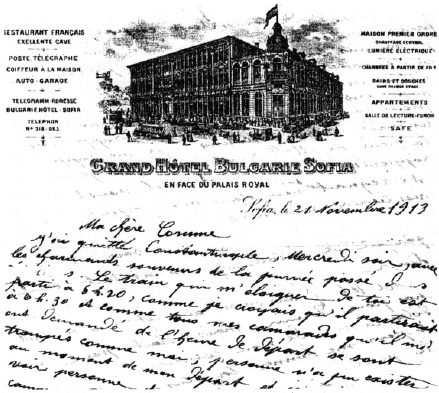 RESTAURANT FRANÇAIS
EXELLENTE CAVE
POSTE TÉLÉGRAPHE
COIFFEUR A LA MAISON
AUTO-GARAGE
TELEGRAMM-ADRESSE
BULGARIE HÔTEL-SOFIA
TELEPHON
MAISON PREMIER ORDRE
CHAUFFAGE CENTRAL
LUMIÈRE ÉLECTRIQUE
CHAMBRES A PARTIR DE
BAINS ET DOUCHES
APPARTEMENTS
SALLE DE LECTURE-FUMOIR
SAFE
GRAND HÔTEL BULGARIE SOFIA
EN FACE DU PALAIS ROYAL
Sofia, le 21 Novembre 1913
Ma chère
j'ai quitté Constantinople, Mercredi soir, avec
les charmands souvenirs de la journée passé
Le train qui m'éloigner de toi est
parti à 6 h. 20, comme je croyais qu'il partirait
à 6 h. 30 et comme tous mes camarades qu'il m'
ont demandé de l'heure de départ se sont
trompés comme moi, personne n'a pu
au moment de mon départ et
voir personne